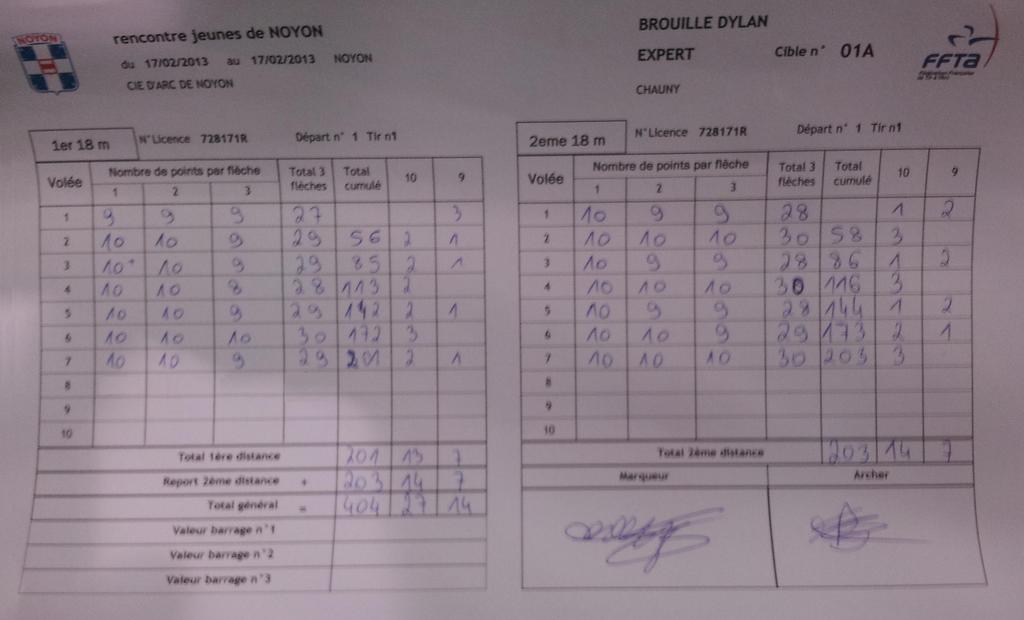 NOYON
rencontre jeunes de NOYON
du 17/02/2013 au 17/02/2013 NOYON
CIE D'ARC DE NOYON
BROUILLE DYLAN
EXPERT Cible n° 01A
CHAUNY
FFTA
1er 18 m N°Licence 728171R Départ n° 1 Tir n1
Volée Nombre de points par flèche Total 3 flèches Total cumulé 10 9
1 2 3
1 9 9 9 27 3
2 10 10 9 29 56 2 1
3 10+ 10 9 29 85 2 1
4 10 10 8 28 113 2
5 10 10 9 29 142 2 1
6 10 10 10 30 172 3
7 10 10 9 29 201 2 1
8
9
10
Total 1ère distance 201 13 7
Report 2ème distance + 203 14 7
Total général = 404 27 14
Valeur barrage n°1
Valeur barrage n°2
Valeur barrage n°3
2eme 18 m N°Licence 728171R Départ n° 1 Tir n1
Volée Nombre de points par flèche Total 3 flèches Total cumulé 10 9
1 2 3
1 10 9 9 28 1 2
2 10 10 10 30 58 3
3 10 9 9 28 86 1 2
4 10 10 10 30 116 3
5 10 9 9 28 144 1 2
6 10 10 9 29 173 2 1
7 10 10 10 30 203 3
8
9
10
Total 2ème distance 203 14 7
Marqueur Archer